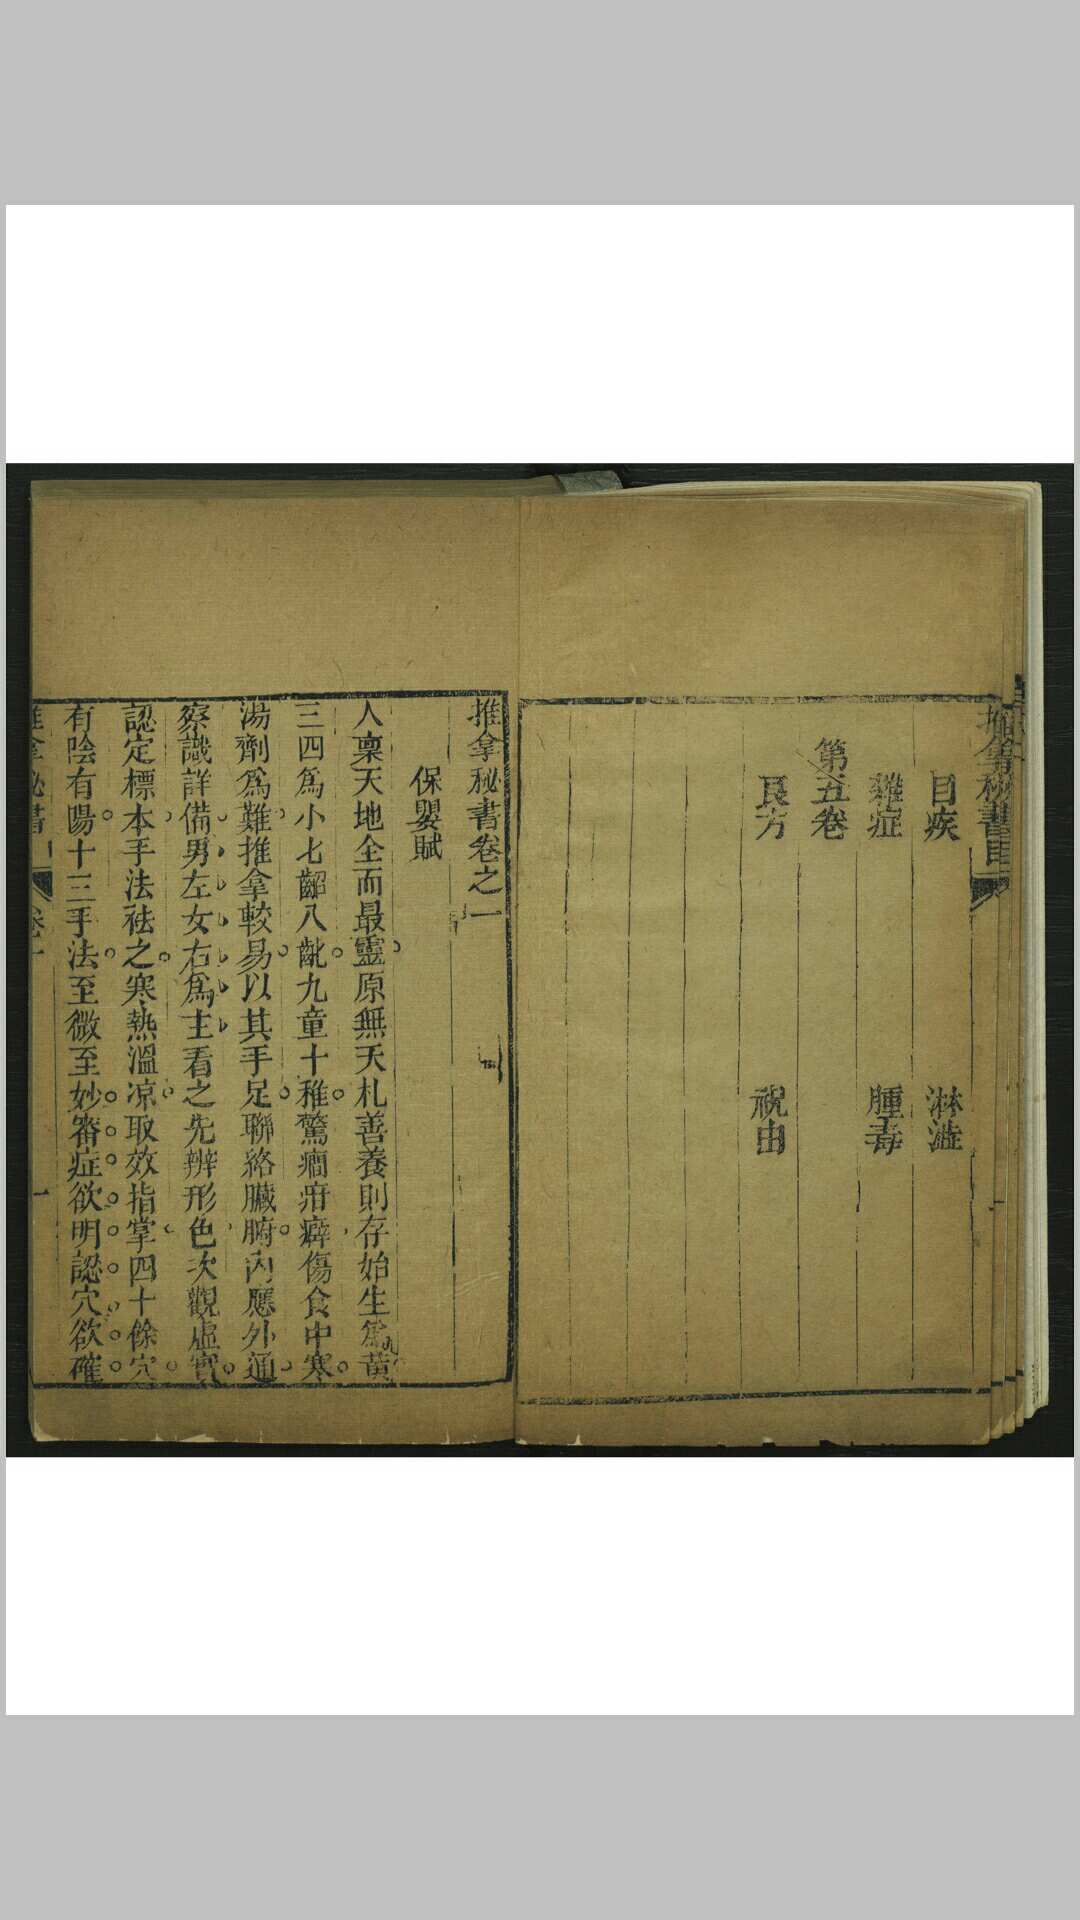 推拿秘書目
目疾　淋澁
雜症　腫毒
第五卷
良方　祝由
推拿秘書卷之一
保嬰賦
人稟天地全而最靈原無夭札善養則存始生爲黃
三四爲小七齠八齔九童十稚驚癇疳癖傷食中寒
湯劑爲難推拿較易以其手足聯絡臟腑內應外通
察識詳備男左女右爲主看之先辨形色次觀虛實
認定標本手法祛之寒熱溫凉取效指掌四十餘穴
有陰有陽十三手法至微至妙審症欲明認穴欲確
推拿秘書　卷一　一